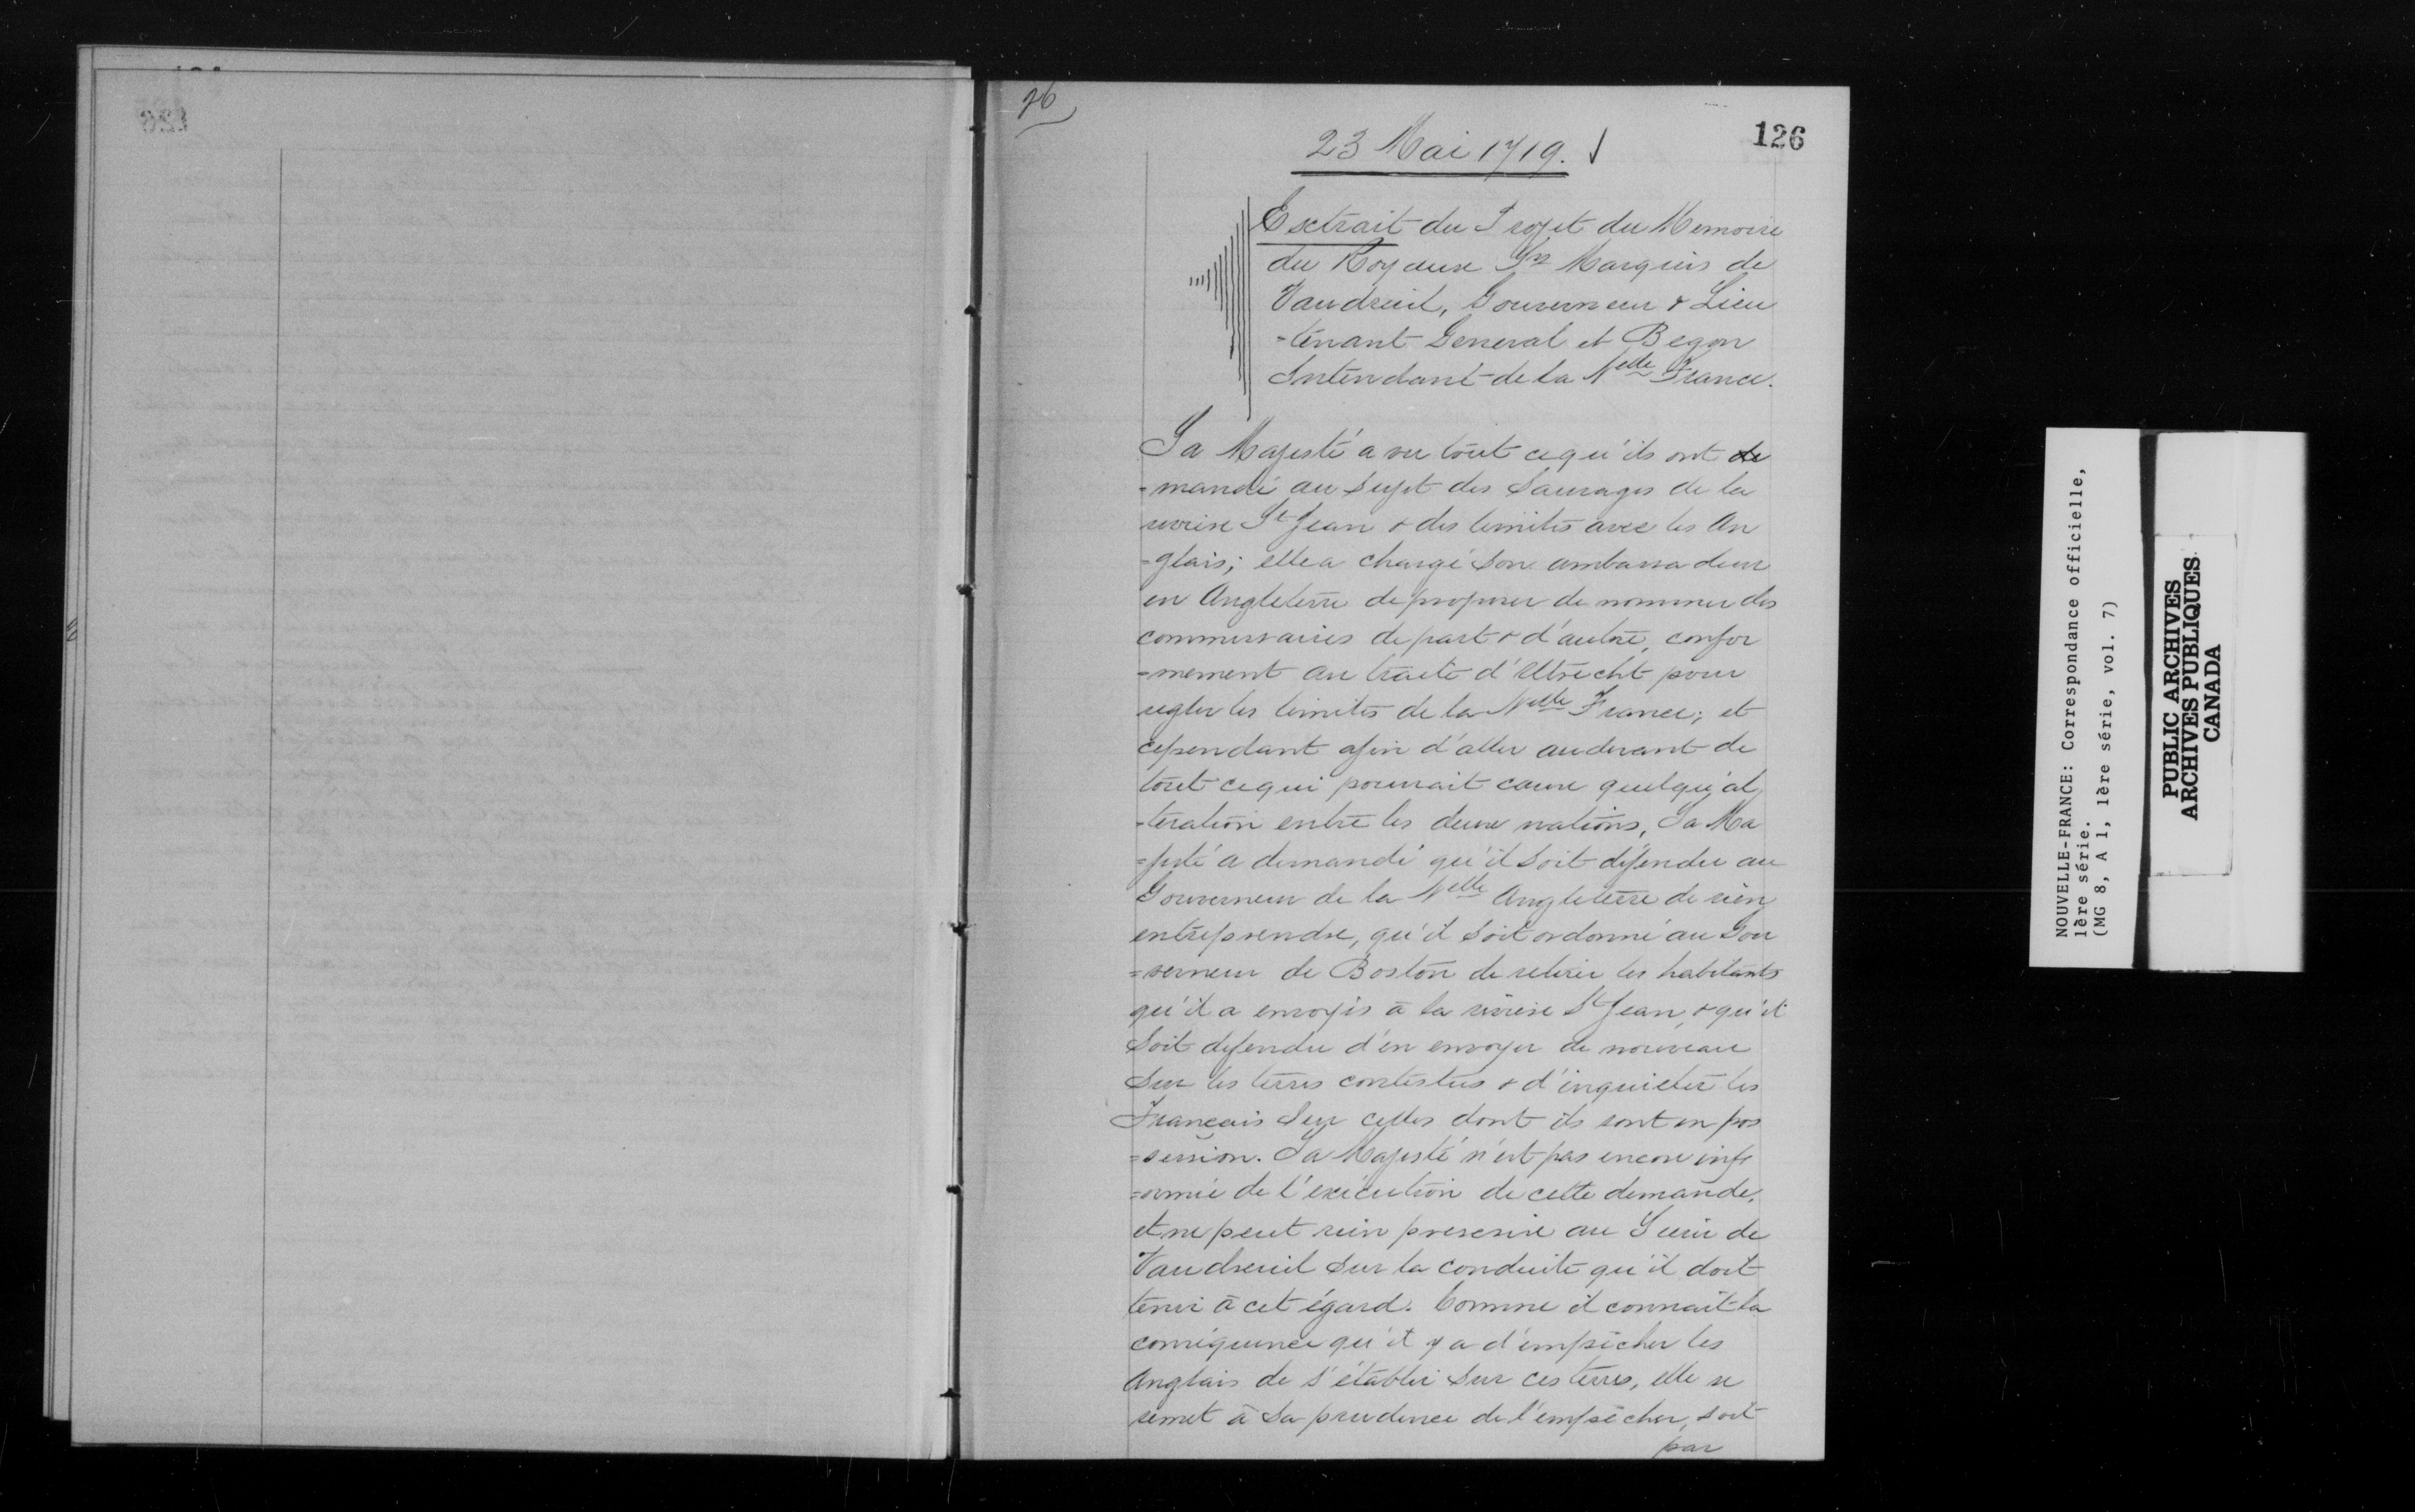 96
126
23 Mai 1719.
Extrait du Projet du Memoire
du Roy aux Srs Marquis de
Vaudreuil, Gouverneur & Lieu
-tenant General et Begon
Intendant de la Nelle France.
Sa Majesté a vu tout ce qu'ils ont de
-mandé au sujet des Sauvages de la
riviere St Jean & des limites avec les An
-glais; elle a chargé son ambassadeur
en Angleterre de proposer de nommer des
commissaires de part & d'autre, confor
-mement au traité d'Utrecht pour
regler les limites de la Nelle France; et
cependant afin d'aller audevant de
tout ce qui pourrait causer quelqu'al
-teration entre les deux nations, Sa Ma
-jesté a demandé qu'il soit défendu au
Gouverneur de la Nelle Angleterre de rien
entreprendre, qu'il soit ordonné au Gou
=verneur de Boston de retirer les habitants
qu'il a envoyés à la riviere St Jean, & qu'il
soit defendu d'en envoyer de nouveau
sur les terres contestées & d'inquieter les
Français sur celles dont ils sont en pos
=session. Sa Majesté n'est pas encore inf
=ormée de l'exécution de cette demande,
et ne peut rien prescrire au Sieur de
Vaudreuil sur la conduite qu'il doit
tenir à cet égard. Comme il connait la
conséquence qu'il y a d'empêcher les
Anglais de s'établir sur ces terres, elle se
remet à sa prudence de l'empêcher, soit
par
NOUVELLE-FRANCE: Correspondance officielle,
1ère série.
(MG 8, A 1, 1ère série, vol. 7)
PUBLIC ARCHIVES
ARCHIVES PUBLIQUES
CANADA